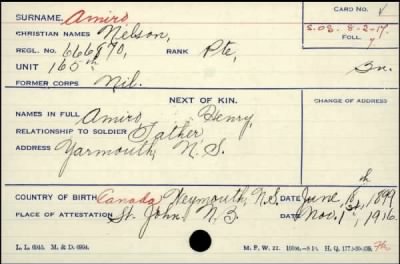 CARD NO.
SURNAME Amiro
S.O.S. 8-2-17.
CHRISTIAN NAMES Nelson,
FOLL.
REGL. NO. 666970, RANK Pte,
UNIT 165th Bn.
FORMER CORPS Nil.
NEXT OF KIN. CHANGE OF ADDRESS
NAMES IN FULL Amiro Henry,
RELATIONSHIP TO SOLDIER Father
ADDRESS Yarmouth, N.S.
COUNTRY OF BIRTH Canada Weymouth, N.S. DATE June 16th, 1899
PLACE OF ATTESTATION St. John, N.B. DATE Nov. 1st, 1916.
L. L. 6045. M. & D. 6994. M. F. W. 22.